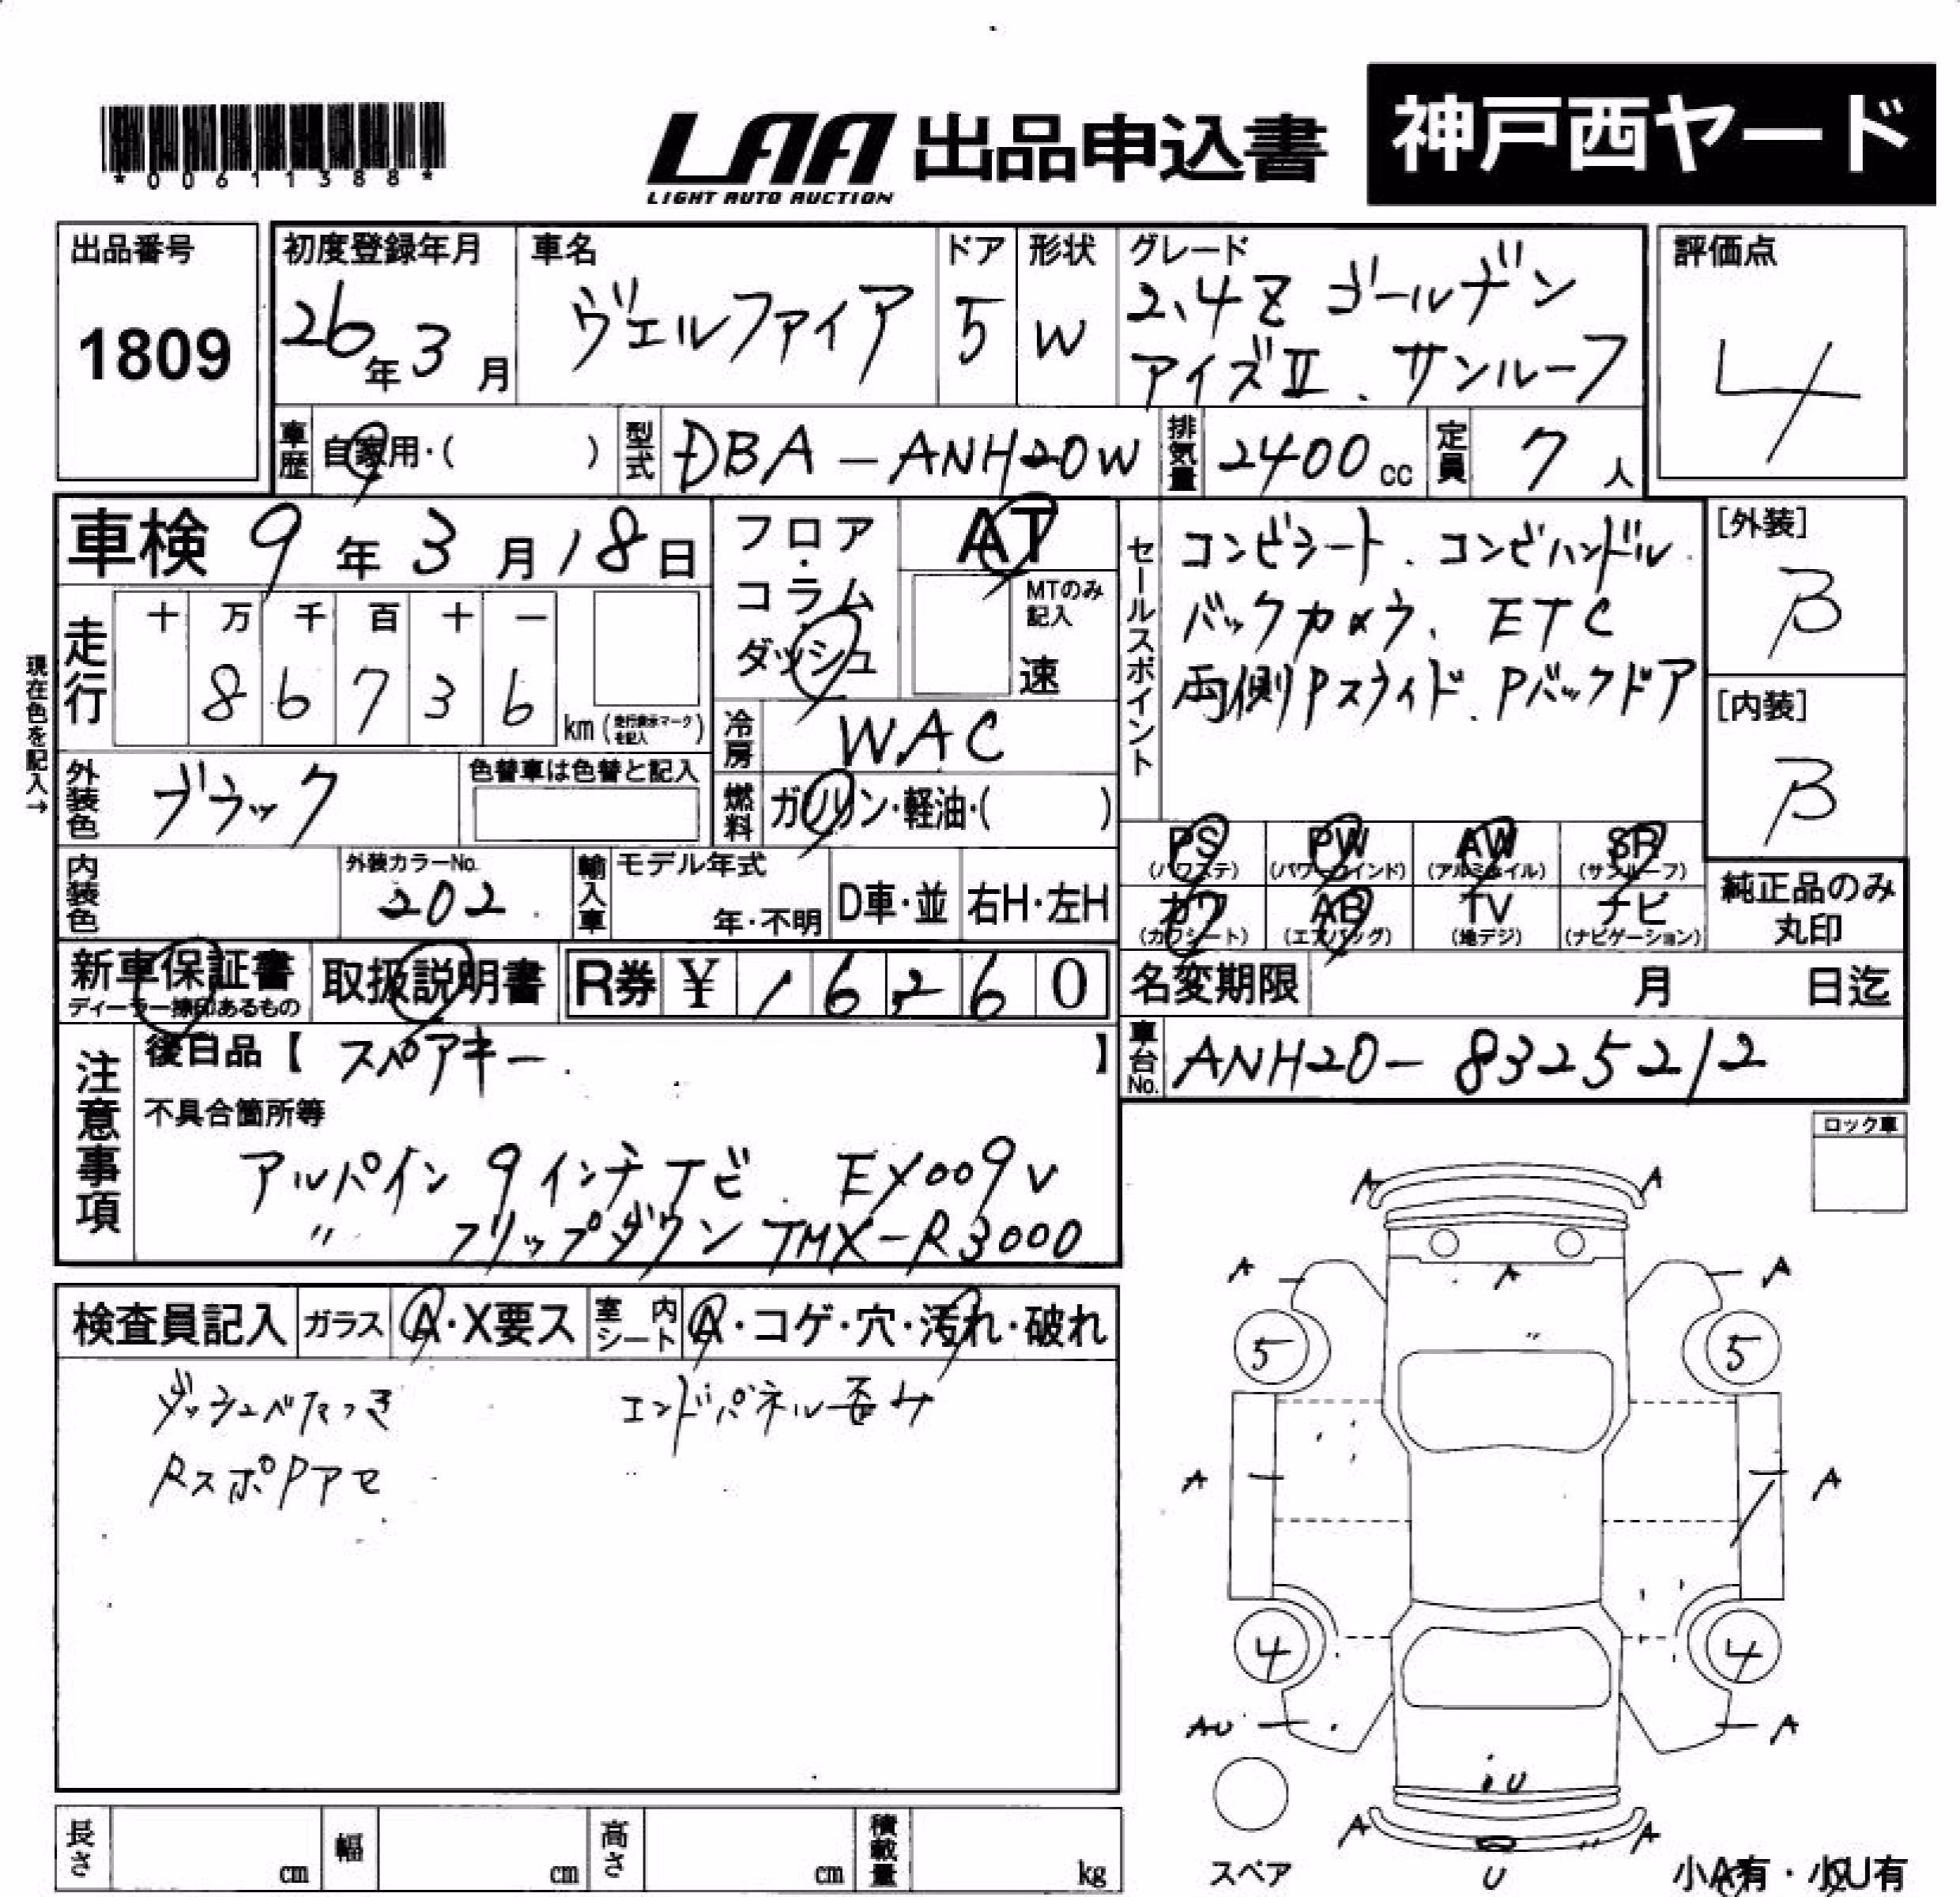 *00611388*
LAA 出品申込書 神戸西ヤード
LIGHT AUTO AUCTION
出品番号 1809
初度登録年月 26年3月
車名 ヴェルファイア
ドア 5
形状 W
グレード 2.4Z ゴールデン
アイズⅡ、サンルーフ
評価点 4
車歴 自家用・( )
型式 DBA-ANH20W
排気量 2400cc
定員 7人
車検 9年3月18日
フロア・コラム ダッシュ
AT
MTのみ記入
速
セールスポイント
コンビシート、コンビハンドル
バックカメラ、ETC
両側Pスライド、Pバックドア
[外装] B
[内装] B
現在色を記入→
走行 十 万 千 百 十 一
8 6 7 3 6 km (走行表示マークを記入)
冷房 WAC
外装色 ブラック
色替車は色替と記入
燃料 ガソリン・軽油・( )
PS (パワステ)
PW (パワーウインド)
AW (アルミホイル)
SR (サンルーフ)
カワ (カワシート)
AB (エアバッグ)
TV (地デジ)
ナビ (ナビゲーション)
純正品のみ
丸印
内装色
外装カラーNo. 202
輸入車 モデル年式
年・不明
D車・並
右H・左H
新車保証書
取扱説明書
R券 ¥ 16,260
名変期限 月 日迄
車台No. ANH20-8325212
注意事項
後日品【スペアキー 】
不具合箇所等
アルパイン 9インチナビ EX009V
〃 フリップダウン TMX-R3000
ロック車
検査員記入
ガラス A・X要ス
室内シート A・コゲ・穴・汚れ・破れ
ダッシュベタつき エンドパネル歪み
RスポPアセ
A A
A A A
5 5
A A
4 4
AU A
U
A A
U
スペア
小A有・小U有
長さ cm
幅 cm
高さ cm
積載量 kg